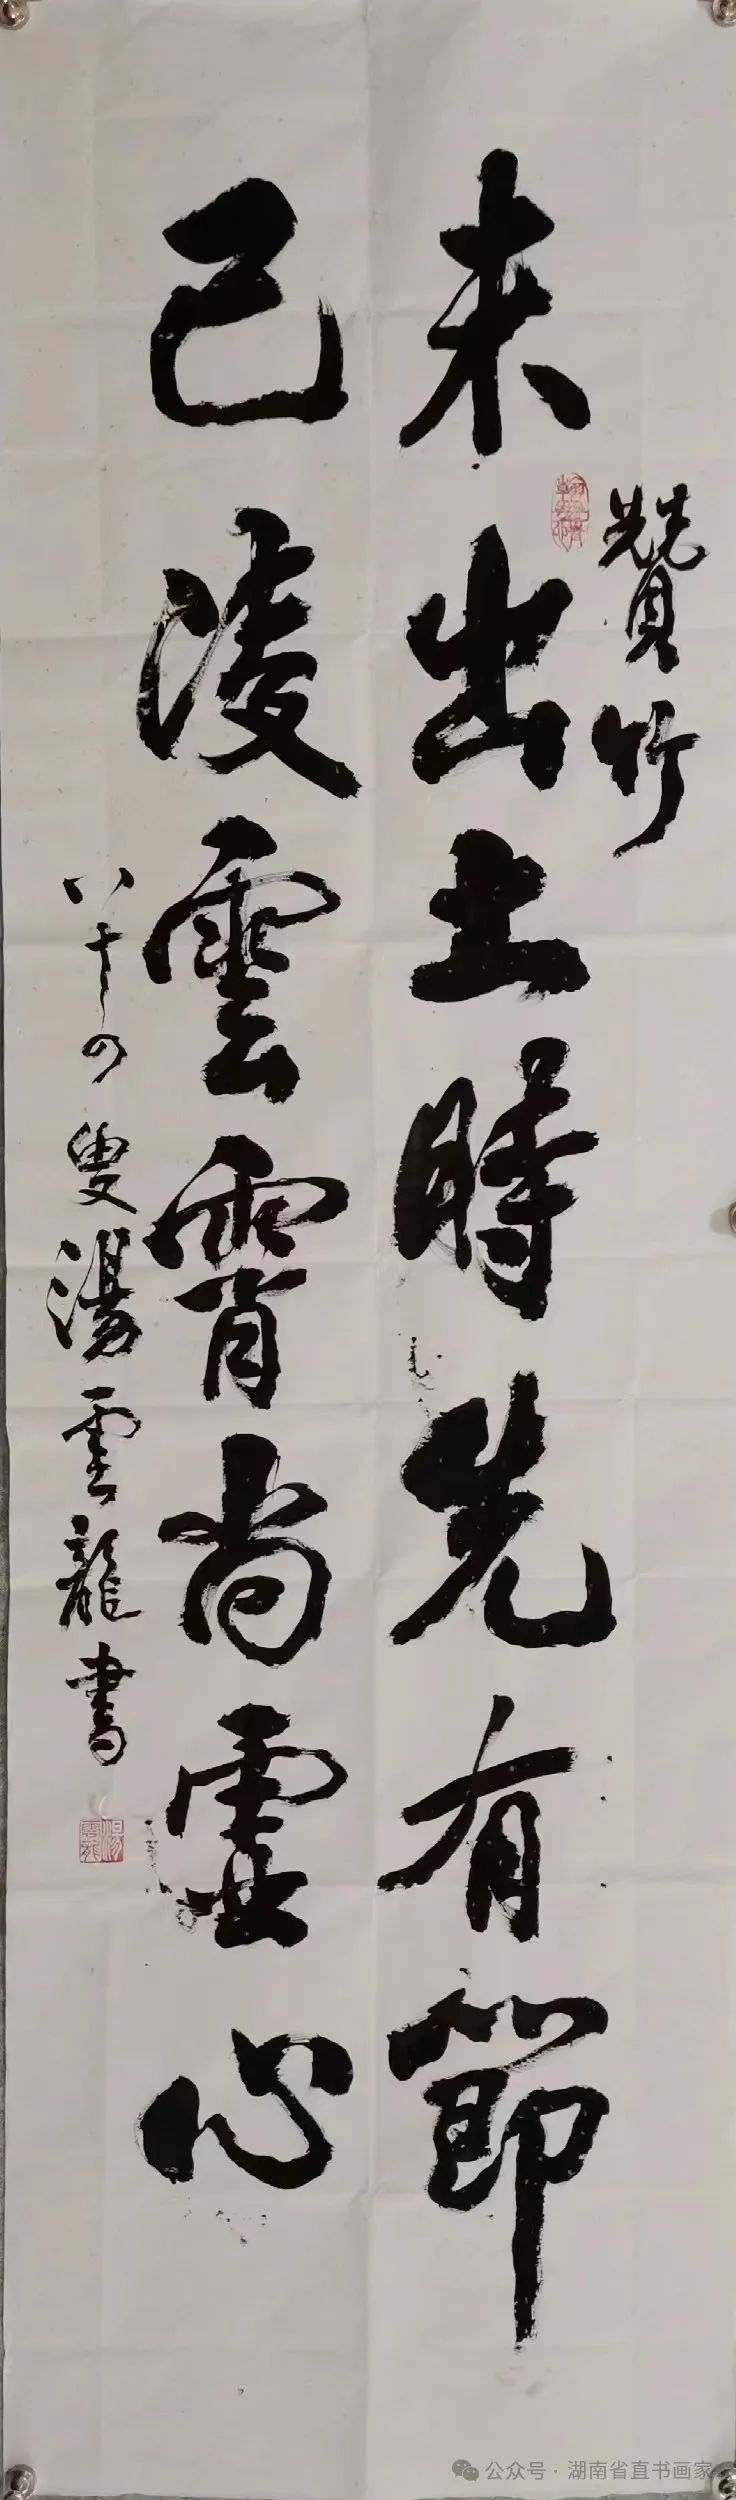 贊竹
未出土時先有節
已凌雲霄尚虛心
八十四叟湯雲龍書
湯雲龍
公众号·湖南省直书画家